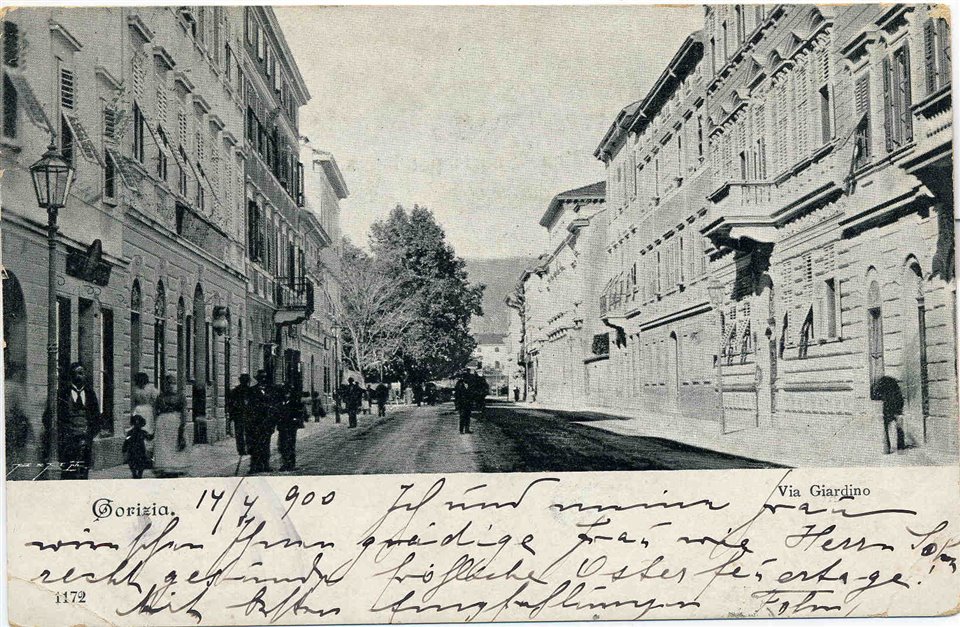 Gorizia. 14/4 900 Ich und meine Frau
Via Giardino
wünschen Ihnen gnädige Frau wie Herrn Sohn
recht gesunde fröhliche Osterfeiertage!
1172
Mit besten Empfehlungen